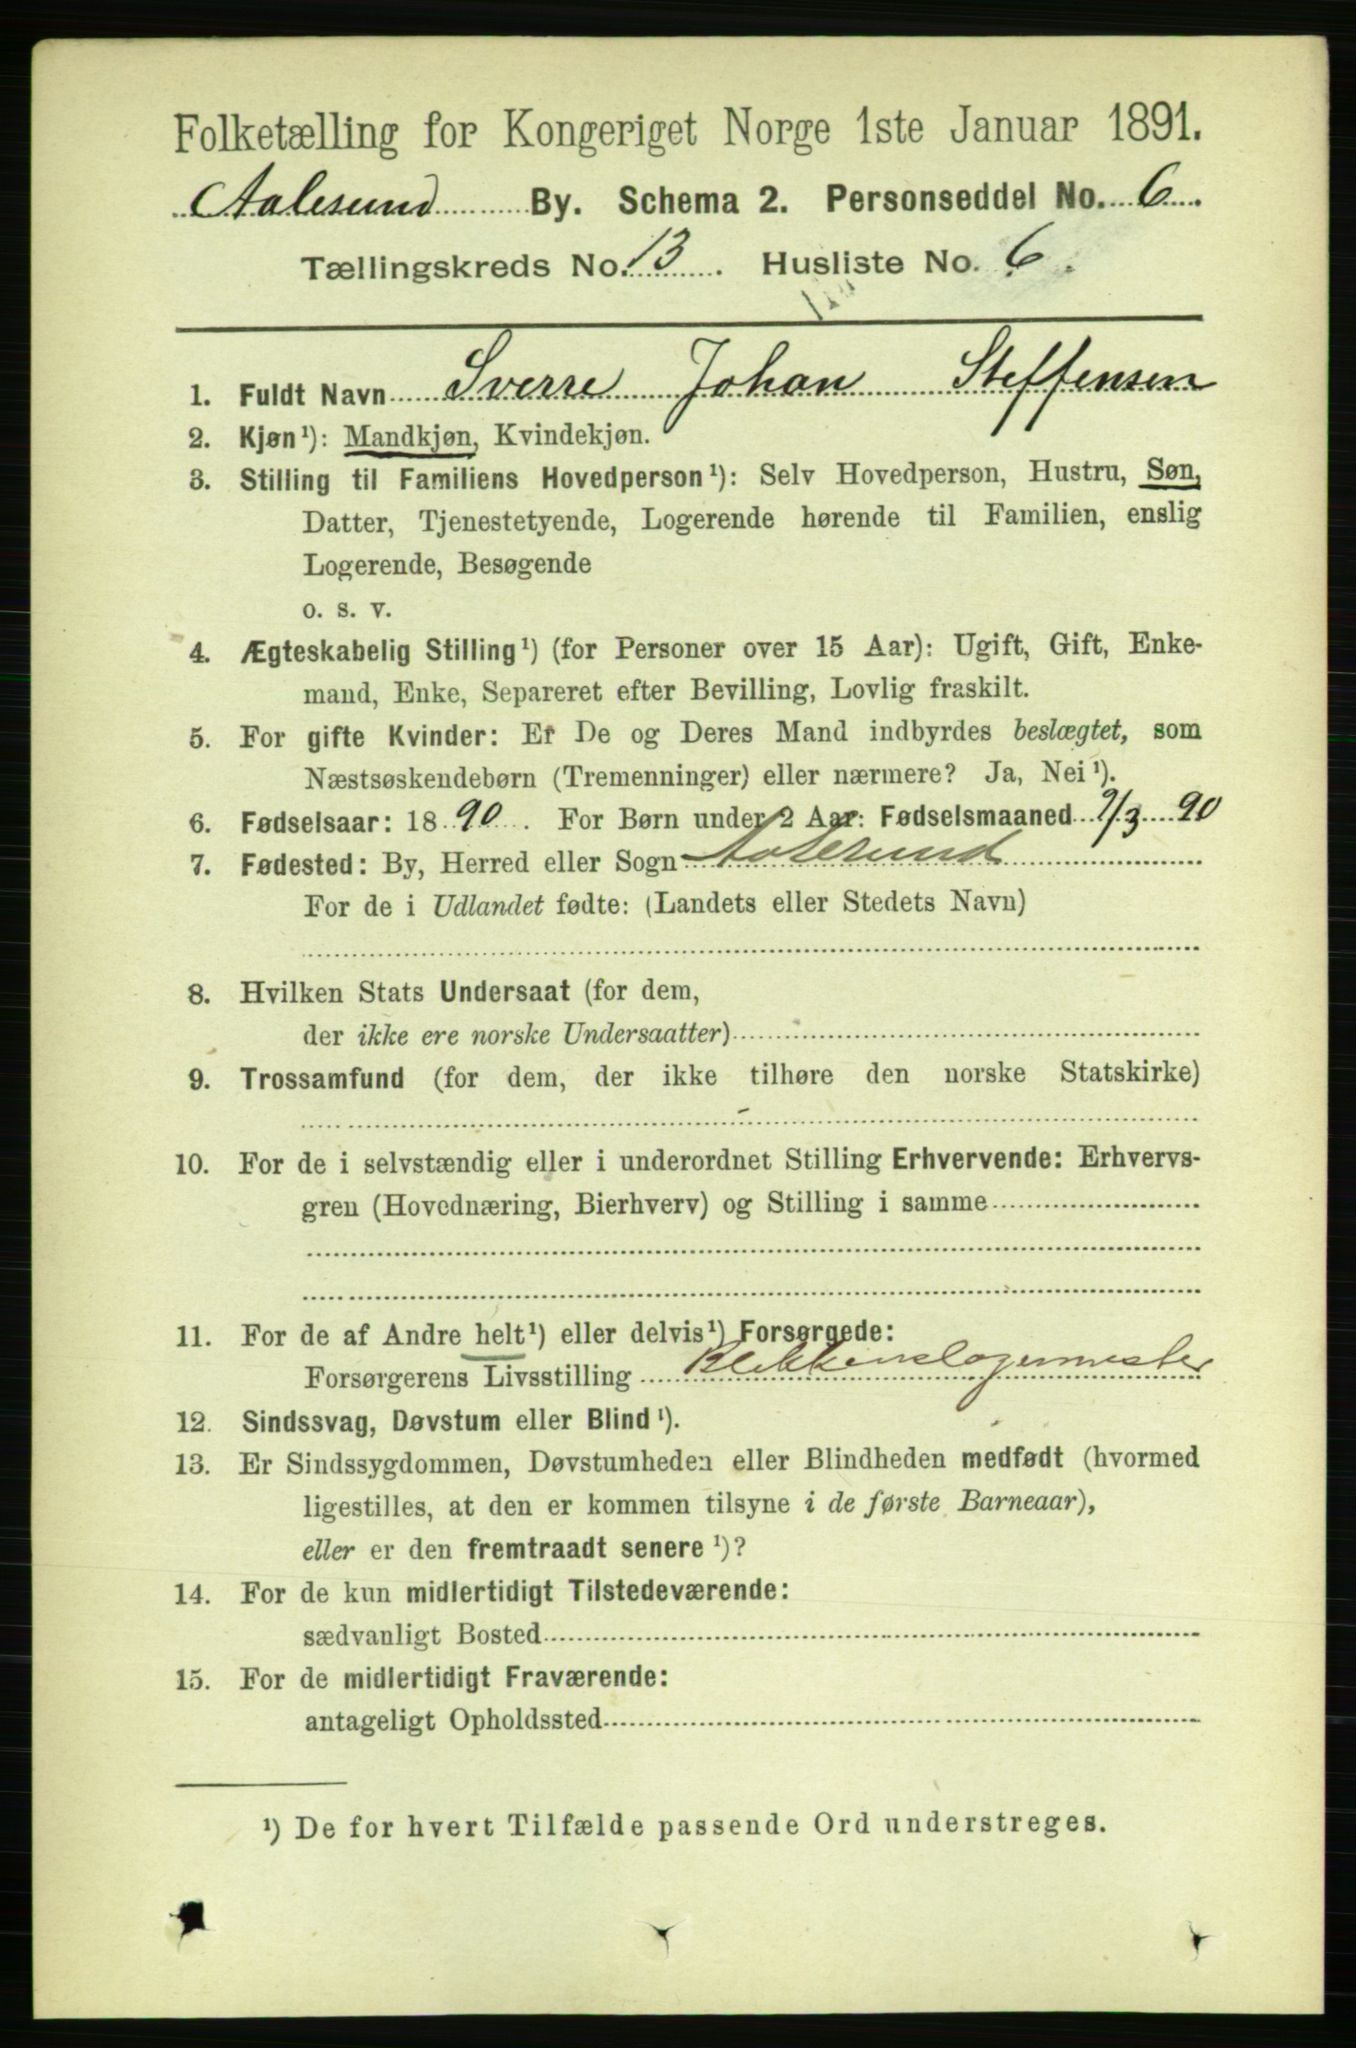 Folketælling for Kongeriget Norge 1ste Januar 1891.
Aalesund By. Schema 2. Personseddel No. 6.
Tællingskreds No. 13. Husliste No. 6.
1. Fuldt Navn Sverre Johan Steffensen
2. Kjøn¹): Mandkjøn, Kvindekjøn.
3. Stilling til Familiens Hovedperson¹): Selv Hovedperson, Hustru, Søn,
Datter, Tjenestetyende, Logerende hørende til Familien, enslig
Logerende, Besøgende
o. s. v.
4. Ægteskabelig Stilling¹) (for Personer over 15 Aar): Ugift, Gift, Enke-
mand, Enke, Separeret efter Bevilling, Lovlig fraskilt.
5. For gifte Kvinder: Er De og Deres Mand indbyrdes beslægtet, som
Næstsøskendebørn (Tremenninger) eller nærmere? Ja, Nei¹).
6. Fødselsaar: 1890. For Børn under 2 Aar: Fødselsmaaned 9/3 90
7. Fødested: By, Herred eller Sogn Aalesund
For de i Udlandet fødte: (Landets eller Stedets Navn)
8. Hvilken Stats Undersaat (for dem,
der ikke ere norske Undersaatter)
9. Trossamfund (for dem, der ikke tilhøre den norske Statskirke)
10. For de i selvstændig eller i underordnet Stilling Erhvervende: Erhvervs-
gren (Hovednæring, Bierhverv) og Stilling i samme
11. For de af Andre helt¹) eller delvis¹) Forsørgede:
Forsørgerens Livsstilling Blikkenslagermester
12. Sindssvag, Døvstum eller Blind¹).
13. Er Sindssygdommen, Døvstumheden eller Blindheden medfødt (hvormed
ligestilles, at den er kommen tilsyne i de første Barneaar),
eller er den fremtraadt senere¹)?
14. For de kun midlertidigt Tilstedeværende:
sædvanligt Bosted
15. For de midlertidigt Fraværende:
antageligt Opholdssted
¹) De for hvert Tilfælde passende Ord understreges.